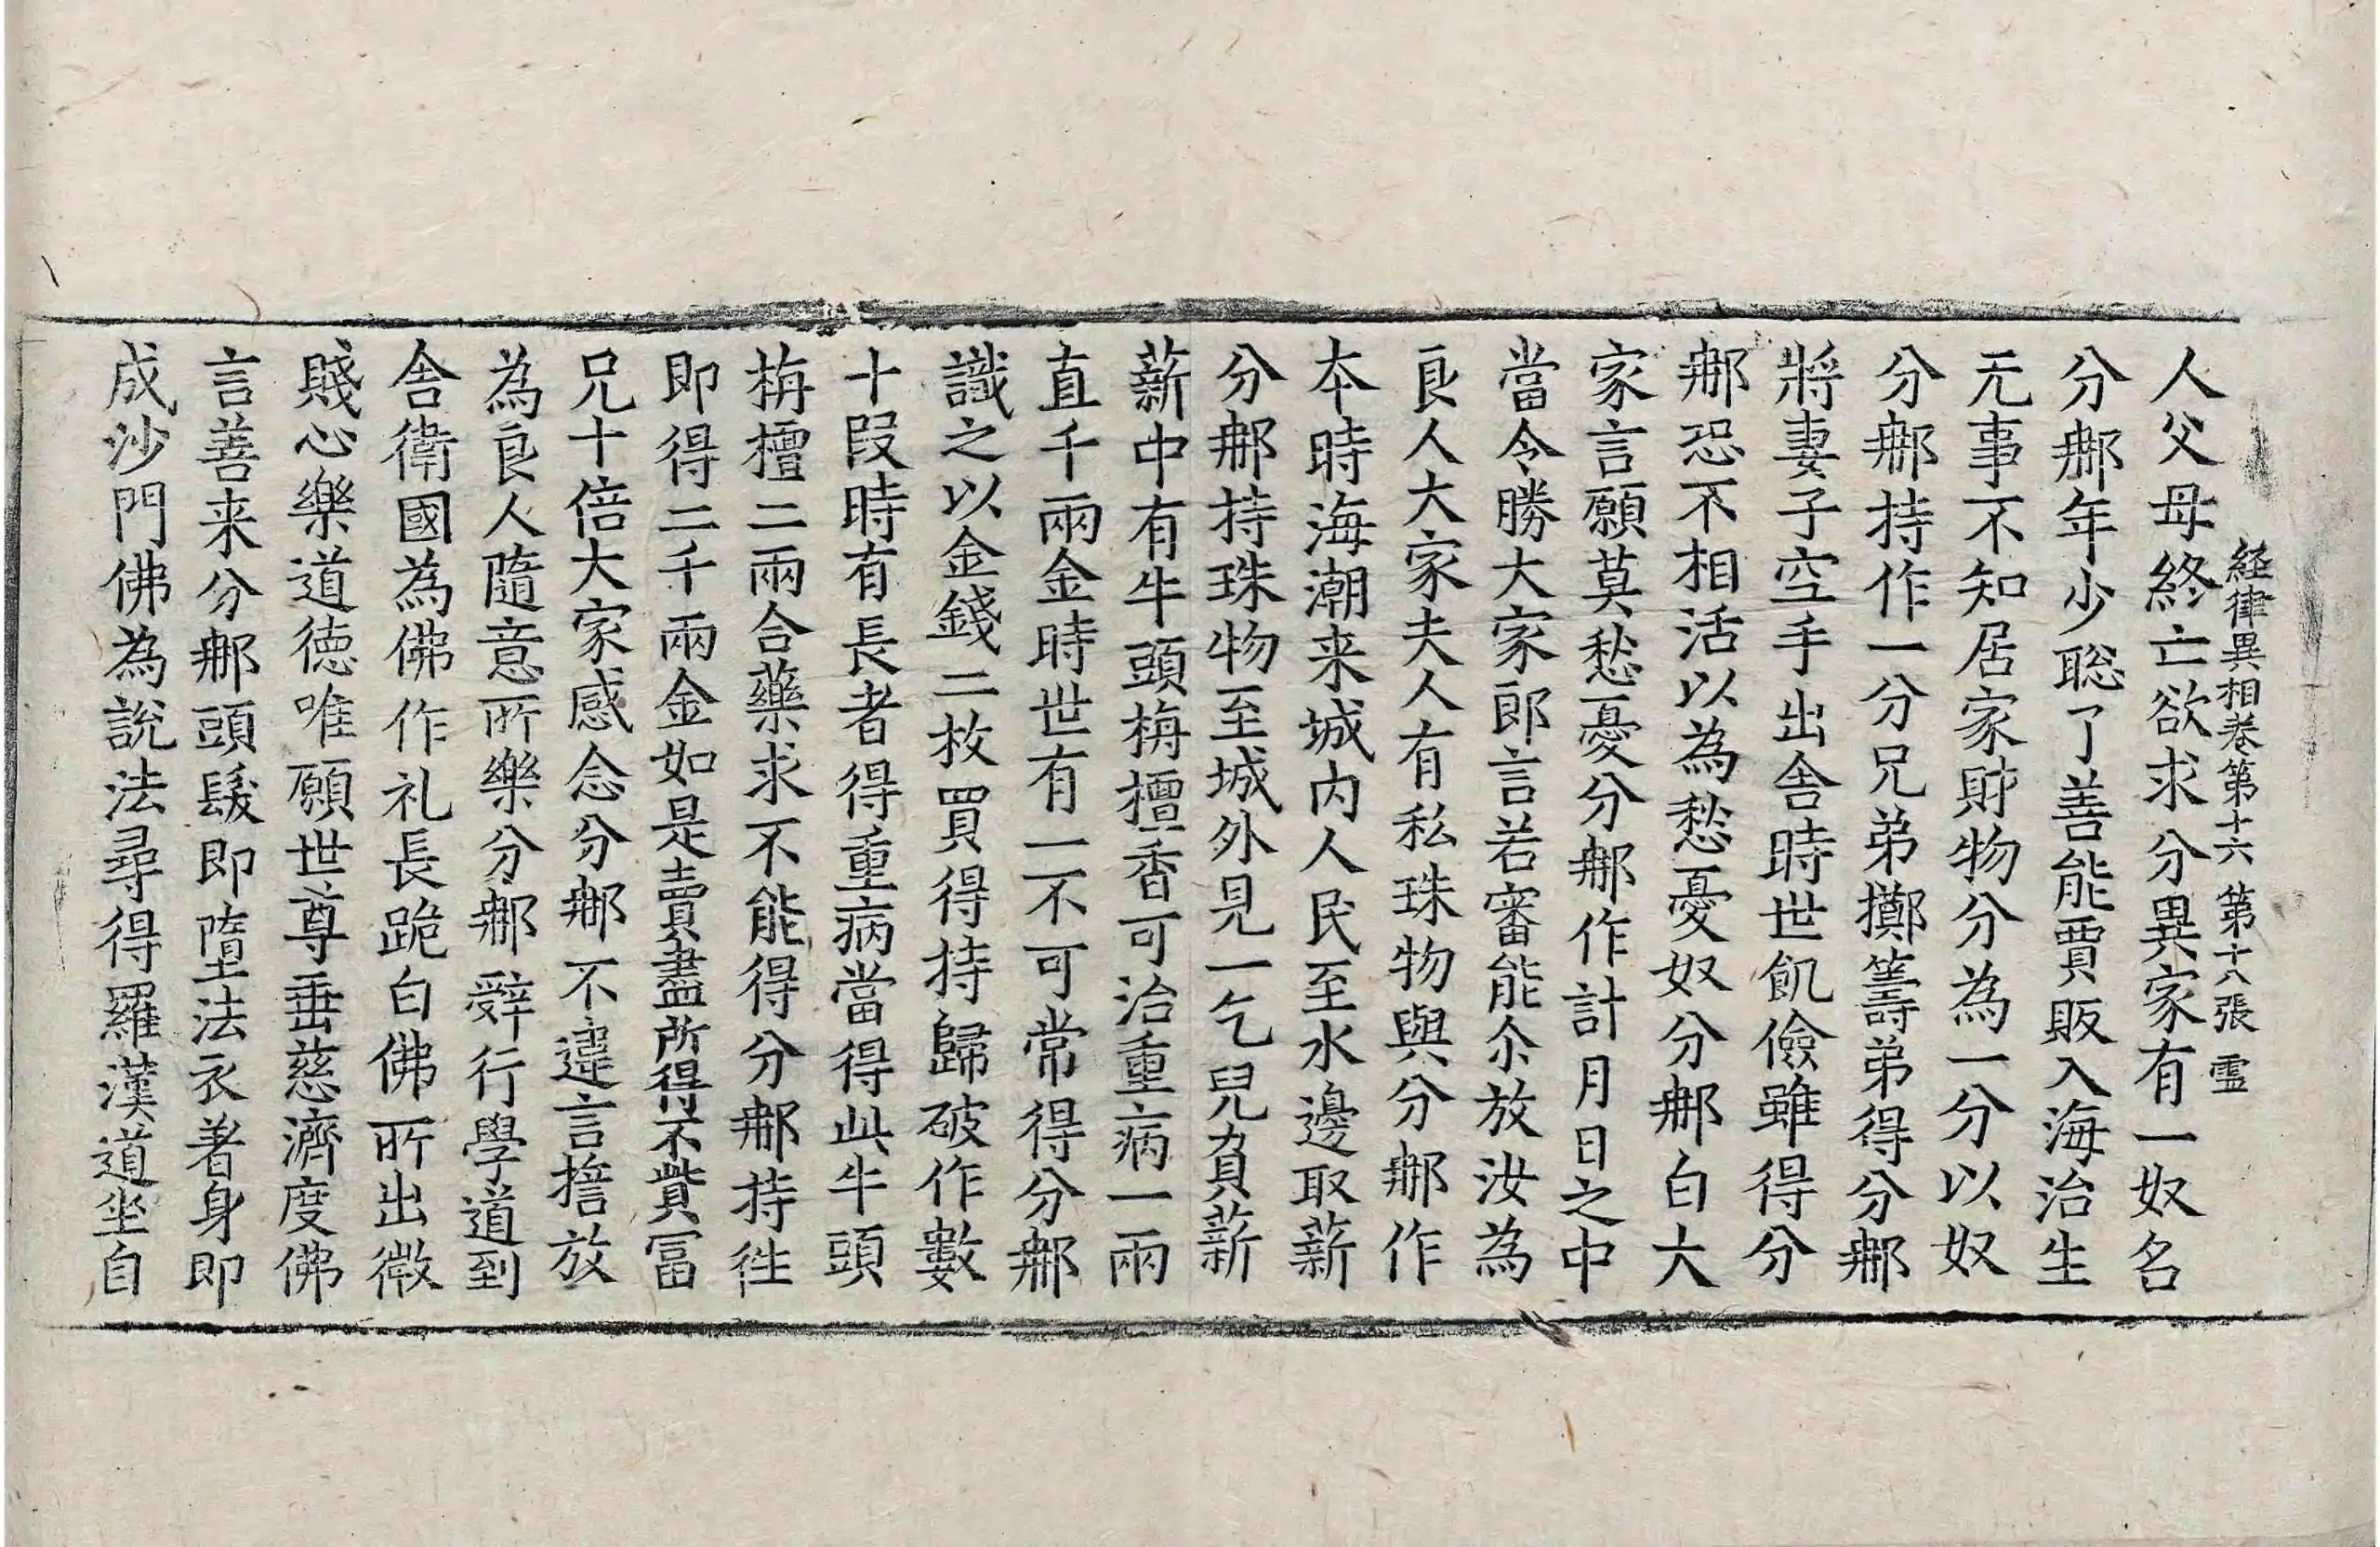 経律異相卷第十六 第十八張 霊
人父母終亡欲求分異家有一奴名
分𨚗年少聡了善能賈販入海治生
无事不知居家財物分為一分以奴
分𨚗持作一分兄弟擲籌弟得分𨚗
將妻子空手出舎時世飢儉雖得分
𨚗恐不相活以為愁憂奴分𨚗白大
家言願莫愁憂分𨚗作計月日之中
當令勝大家郎言若審能尒放汝為
良人大家夫人有私珠物與分𨚗作
夲時海潮来城内人民至水邊取薪
分𨚗持珠物至城外見一乞兒負薪
薪中有牛頭栴檀香可治重病一兩
直千兩金時世有一不可常得分𨚗
識之以金錢二枚買得持歸破作數
十段時有長者得重病當得此牛頭
栴檀二兩合藥求不能得分𨚗持徃
即得二千兩金如是賣盡所得不貲冨
兄十倍大家感念分𨚗不違言擔放
為良人隨意所樂分𨚗辤行學道到
舎衛國為佛作礼長跪白佛所出微
賤心樂道徳唯願世尊垂慈濟度佛
言善来分𨚗頭髮即墮法衣著身即
成沙門佛為說法尋得羅漢道坐自